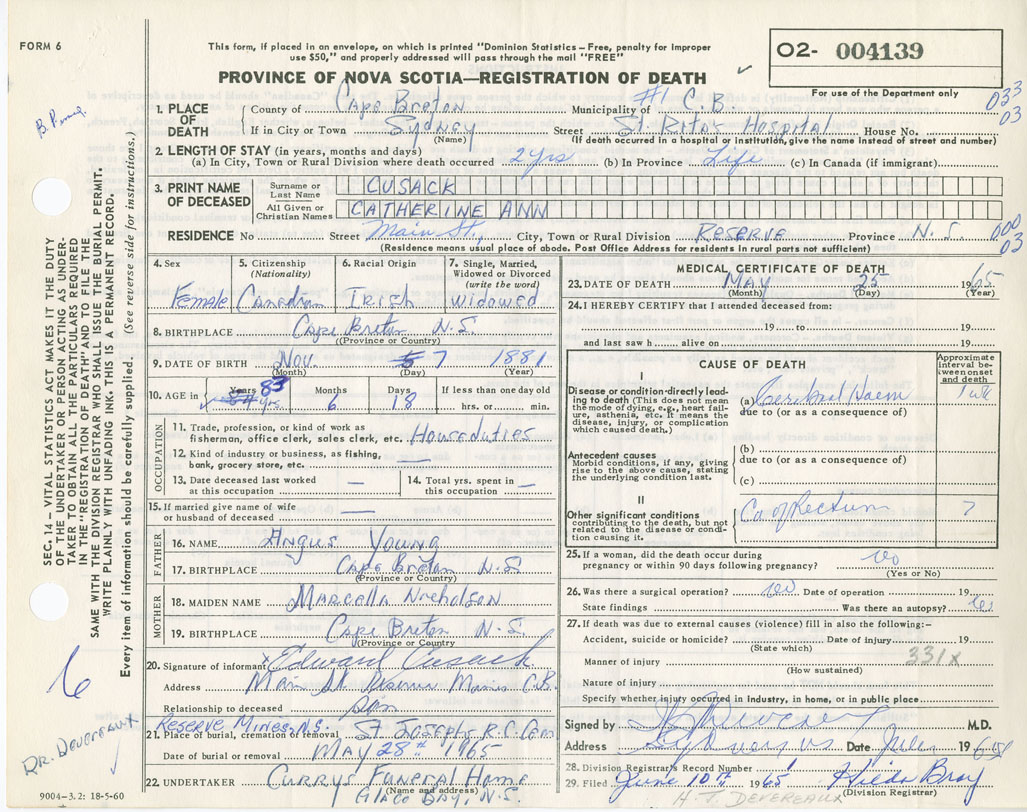 FORM 6
This form, if placed in an envelope, on which is printed "Dominion Statistics – Free, penalty for improper
use $50," and properly addressed will pass through the mail "FREE"
PROVINCE OF NOVA SCOTIA—REGISTRATION OF DEATH
02- 004139
For use of the Department only
033
03
1. PLACE OF DEATH
County of Cape Breton Municipality of #1 C.B.
If in City or Town Sydney Street St. Rita's Hospital House No.
(Name) (If death occurred in a hospital or institution, give the name instead of street and number)
2. LENGTH OF STAY (in years, months and days)
(a) In City, Town or Rural Division where death occurred 2 yrs (b) In Province Life (c) In Canada (if immigrant)
3. PRINT NAME OF DECEASED
Surname or Last Name CUSACK
All Given or Christian Names CATHERINE ANN
RESIDENCE No Street Main St., City, Town or Rural Division RESERVE Province N.S.
000
03
(Residence means usual place of abode. Post Office Address for residents in rural parts not sufficient)
4. Sex Female
5. Citizenship (Nationality) Canadian
6. Racial Origin Irish
7. Single, Married, Widowed or Divorced (write the word) Widowed
8. BIRTHPLACE Cape Breton N.S.
(Province or Country)
9. DATE OF BIRTH Nov. 7 1881
(Month) (Day) (Year)
10. AGE in Years 83 Months 6 Days 18 If less than one day old hrs. or min.
OCCUPATION
11. Trade, profession, or kind of work as
fisherman, office clerk, sales clerk, etc. Houseduties
12. Kind of industry or business, as fishing,
bank, grocery store, etc. —
13. Date deceased last worked at this occupation —
14. Total yrs. spent in this occupation —
15. If married give name of wife
or husband of deceased —
FATHER
16. NAME Angus Young
17. BIRTHPLACE Cape Breton N.S.
(Province or Country)
MOTHER
18. MAIDEN NAME Marcella Nicholson
19. BIRTHPLACE Cape Breton N.S.
(Province or Country)
20. Signature of informant x Edward Cusack
Address Main St Reserve Mines C.B.
Relationship to deceased Son
Reserve Mines, N.S.
21. Place of burial, cremation or removal St Joseph's R.C. Cem
Date of burial or removal MAY 28th 1965
22. UNDERTAKER Curry's Funeral Home
(Name and address)
Glace Bay, N.S.
MEDICAL CERTIFICATE OF DEATH
23. DATE OF DEATH May 25 1965
(Month) (Day) (Year)
24. I HEREBY CERTIFY that I attended deceased from:
19 to 19
and last saw h alive on 19
CAUSE OF DEATH
Approximate interval between onset and death
I
Disease or condition directly leading to death (This does not mean
the mode of dying, e.g., heart failure, asthenia, etc. It means the
disease, injury, or complication which caused death.)
(a) Cerebral Haem 1 wk
due to (or as a consequence of)
Antecedent causes
Morbid conditions, if any, giving
rise to the above cause, stating
the underlying condition last.
(b)
due to (or as a consequence of)
(c)
II
Other significant conditions
contributing to the death, but not
related to the disease or condition causing it.
Ca of Rectum ?
25. If a woman, did the death occur during
pregnancy or within 90 days following pregnancy? No
(Yes or No)
26. Was there a surgical operation? No Date of operation 19
State findings Was there an autopsy? Yes
27. If death was due to external causes (violence) fill in also the following:-
Accident, suicide or homicide? Date of injury 19
(State which)
331x
Manner of injury
(How sustained)
Nature of injury
Specify whether injury occurred in Industry, in home, or in public place
Signed by M.D.
Address Sydney NS Date 1965
28. Division Registrar's Record Number
29. Filed June 10th 1965 Hilda Bray
(Division Registrar)
H. J. DEVEREAUX
SEC. 14 – VITAL STATISTICS ACT MAKES IT THE DUTY
OF THE UNDERTAKER OR PERSON ACTING AS UNDERTAKER TO OBTAIN ALL THE PARTICULARS REQUIRED
IN THE "REGISTRATION OF DEATH" AND TO FILE THE
SAME WITH THE DIVISION REGISTRAR WHO SHALL ISSUE THE BURIAL PERMIT.
WRITE PLAINLY WITH UNFADING INK. THIS IS A PERMANENT RECORD.
Every item of information should be carefully supplied. (See reverse side for instructions.)
DR. DEVEREAUX
9004-3.2: 18-5-60